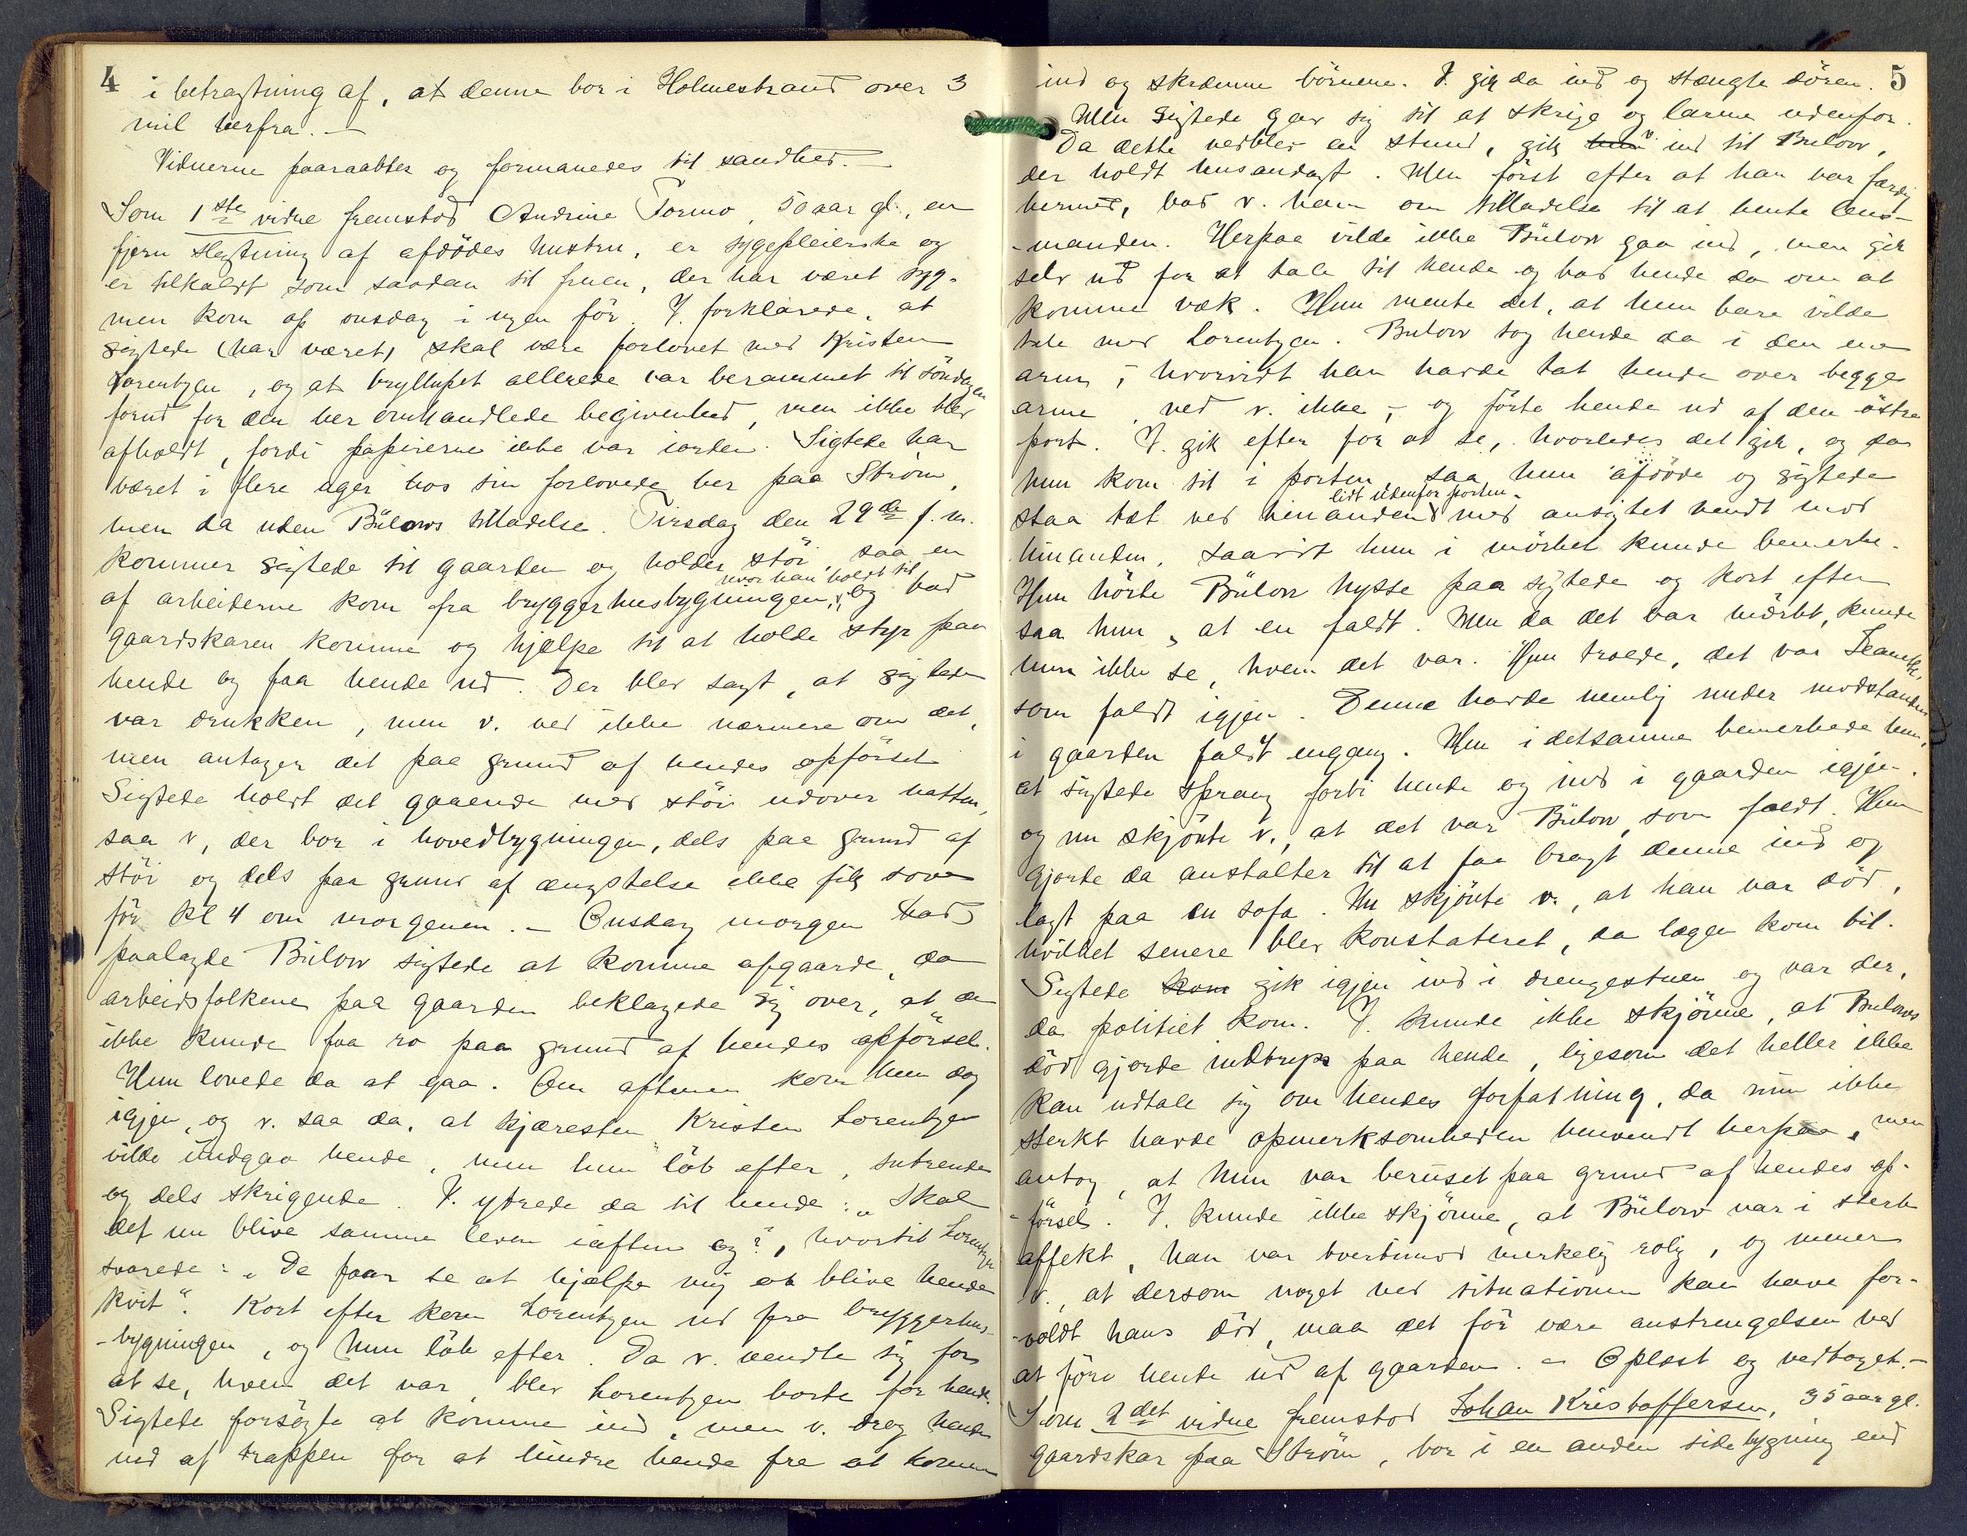 4
i betragtning af, at denne bor i Holmestrand over 3
mil herfra. —
Vidnerne paaraabtes og formanedes til sandhed. —
Som 1ste vidne fremstod Andrine Formo, 50 aar gl., en
fjern slegtning af afdødes hustru, er sygepleierske og
er tilkaldt som saadan til fruen, der har været syg,
men kom op onsdag i ugen før. V. forklarede, at
sigtede (har været) skal være forlovet med Kristen
Lorentzen, og at bryllupet allerede var berammet til søndagen
forud for den her omhandlede begivenhed, men ikke blev
afholdt, fordi papirerne ikke var iorden. Sigtede har
været i flere uger hos sin forlovede her paa Strøm,
men da uden Bülows tilladelse. Tirsdag den 29de f. m.
kommer sigtede til gaarden og holder støi, saa en
hvor han holdt til
af arbeiderne kom fra bryggerhusbygningen, og bad
gaardskaren komme og hjælpe til at holde styr paa
hende og faa hende ud. Der blev sagt, at sigtede
var drukken, men v. ved ikke nærmere om det,
men antager det paa grund af hendes opførsel
Sigtede holdt det gaaende med støi udover natten,
saa v, der bor i hovedbygningen, dels paa grund af
støi og dels paa grund af ængstelse ikke fik sove
før kl 4 om morgenen. — Onsdag morgen bad
paalagde Bülow sigtede at komme afgaarde, da
arbeidsfolkene paa gaarden beklagede sig over, at de
ikke kunde faa ro paa grund af hendes opførsel.
Hun lovede da at gaa. Om aftenen kom hun dog
igjen, og v. saa da, at kjæresten Kristen Lorentzen
vilde undgaa hende, men hun løb efter, sutrende
og dels skrigende. V. ytrede da til hende: „Skal
det nu blive samme leven iaften og?", hvortil Lorentzen
svarede: „De faar se at hjælpe mig at blive hende
kvit". Kort efter kom Lorentzen ud fra bryggerhus-
-bygningen, og hun løb efter. Da v. vendte sig for
at se, hvem det var, blev Lorentzen borte for hende.
Sigtede forsøgte at komme ind, men v. drog hende
ud af trappen for at hindre hende fra at komme
5
ind og skræmme børnene. V. gik da ind og stængte døren.
Men sigtede gav sig til at skrige og larme udenfor.
Da dette vedblev en stund, gik hun v. ind til Bülow,
der holdt husandagt. Men først efter at han var færdig
hermed, bad v. ham om tilladelse til at hente lens-
-manden. Herpaa vilde ikke Bülow gaa ind, men gik
selv ud for at tale til hende og bad hende da om at
komme væk. Hun mente det, at hun bare vilde
tale med Lorentzen. Bülow tog hende da i den ene
arm, – hvorvidt han havde tat hende over begge
arme, ved v. ikke, – og førte hende ud af den østre
port. V. gik efter for at se, hvorledes det gik, og da
hun kom til i porten, saa hun afdøde og sigtede
lidt udenfor porten
staa tæt ved hinanden med ansigtet vendt mod
hinanden, saavidt hun i mørket kunde bemerke.
Hun hørte Bülow hysse paa sigtede og kort efter
saa hun, at en faldt. Men da det var mørkt, kunde
hun ikke se, hvem det var. Hun troede, det var
som faldt igjen. Denne havde nemlig under modstanden
i gaarden faldt engang. Men i detsamme bemerkede hun,
at sigtede sprang forbi hende og ind i gaarden igjen,
og nu skjønte v., at det var Bülow, som faldt. Hun
gjorde da anstalter til at faa bragt denne ind og
lagt paa en sofa. Nu skjønte v., at han var død,
hvilket senere blev konstateret, da lægen kom til.
Sigtede kom gik igjen ind i drengestuen og var der,
da politiet kom. V. kunde ikke skjønne, at Bülows
død gjorde indtryk paa hende, ligesom det heller ikke
kan udtale sig om hendes forfatning, da hun ikke
sterkt havde opmerksomheden henvendt herpaa, men
antog, at hun var beruset paa grund af hendes op-
-førsel. V. kunde ikke skjønne, at Bülow var i sterk
affekt, han var tvertimod merkelig rolig, og mener
v., at dersom noget ved situationen kan have for-
-voldt hans død, maa det før være anstrengelsen ved
at føre hende ud af gaarden. – Oplæst og vedtaget. –
Som 2det vidne fremstod Johan Kristoffersen, 35 aar gl.
gaardskar paa Strøm, bor i en anden sidebygning end